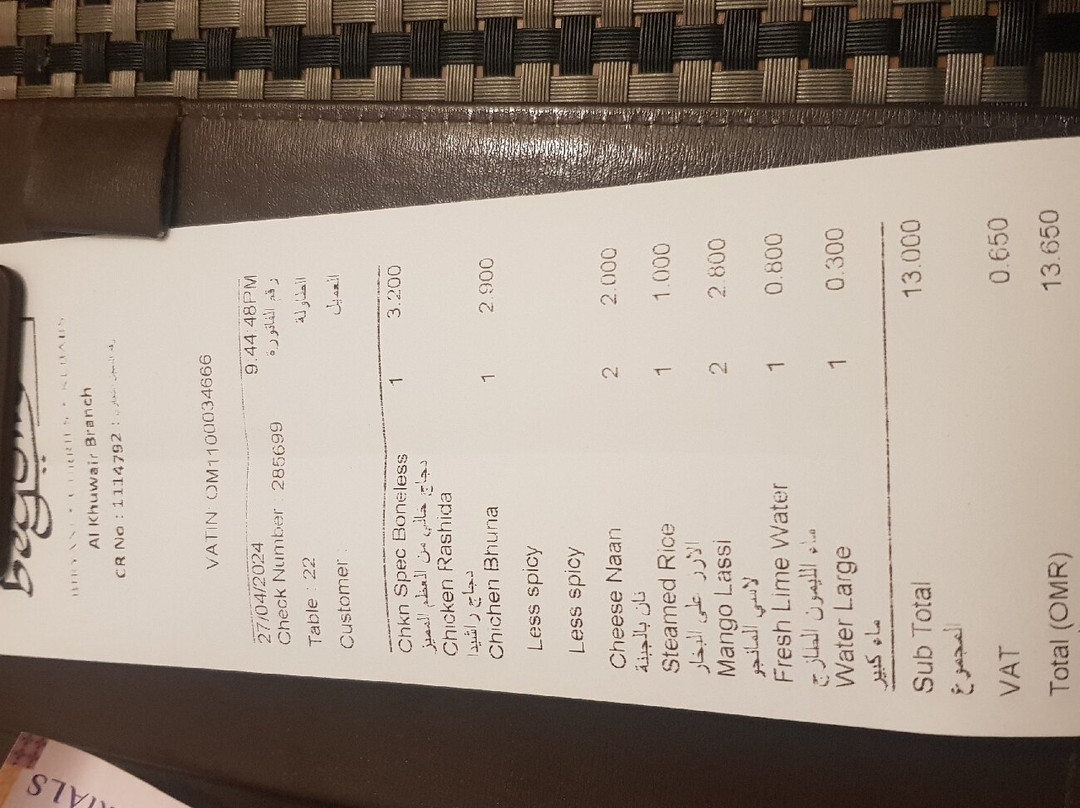 Al Khuwair Branch
CR No : 1114792 :
VATIN OM1100034666
27/04/2024 9:44:48PM
Check Number : 285699 رقم الفاتورة
Table : 22 الطاولة
Customer : العميل
Chkn Spec Boneless 1 3.200
دجاج خالي من العظم المميز
Chicken Rashida
دجاج راشيدا
Chichen Bhuna 1 2.900
Less spicy
Less spicy
Cheese Naan 2 2.000
نان بالجبنة
Steamed Rice 1 1.000
الارز على البخار
Mango Lassi 2 2.800
لاسي المانجو
Fresh Lime Water 1 0.800
ماء الليمون الطازج
Water Large 1 0.300
ماء كبير
Sub Total 13.000
المجموع
VAT 0.650
Total (OMR) 13.650